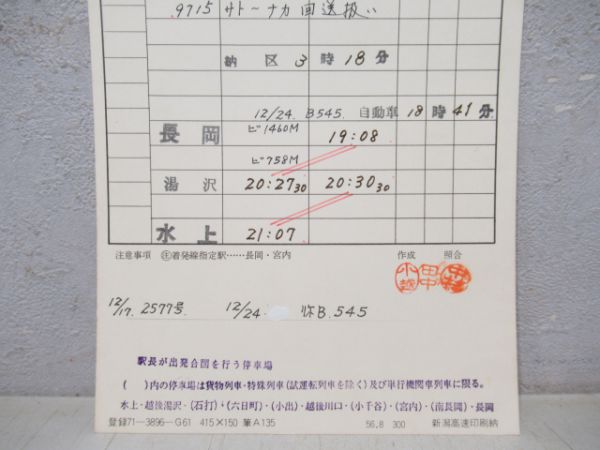 9715 サトーナカ回送扱い
納区 3時18分
12/24. B545. 自動車 18時41分
長岡 ビ1460M 19:08
ビ758M
湯沢 20:27 30 20:30 30
水上 21:07
注意事項 ㊟着発線指定駅……長岡・宮内 作成 照合
小越 田中
12/17. 2577号 12/24. B.545
駅長が出発合図を行う停車場
( )内の停車場は貨物列車・特殊列車(試運転列車を除く)及び単行機関車列車に限る。
水上・越後湯沢・(石打)・(六日町)・(小出)・越後川口・(小千谷)・(宮内)・(南長岡)・長岡
登録71-3896-G61 415×150 筆A135 56.8 300 新潟高速印刷納